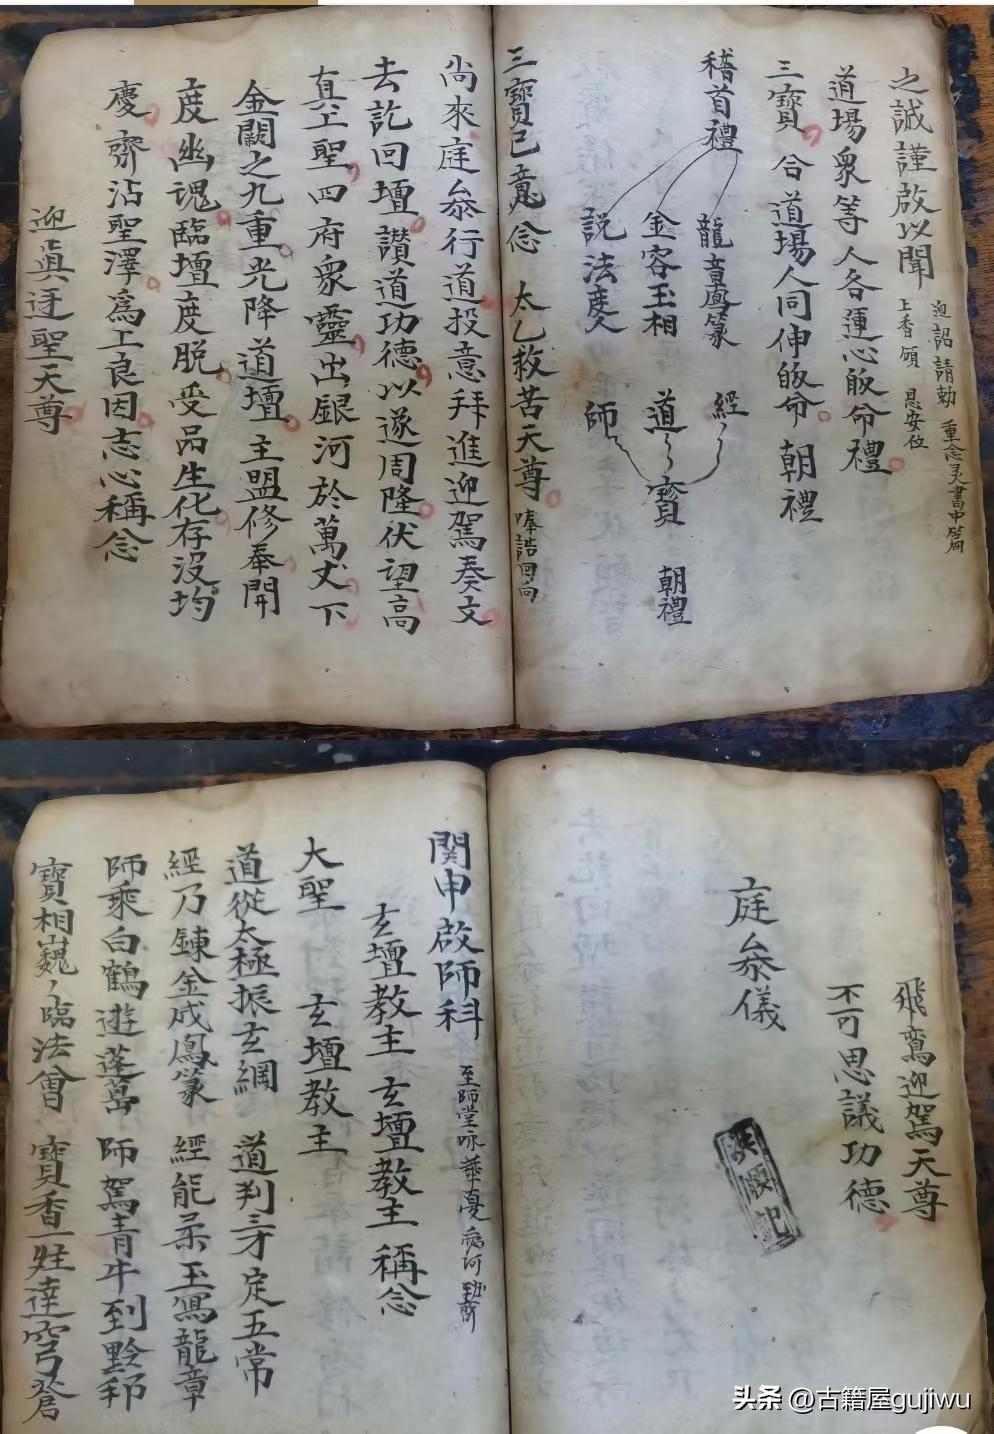 之誠謹啟以聞
迎詔請勅 重念灵書中篇
上香願 恩安位
道場衆等人各運心皈命禮
三寶 合道場人同伸皈命 朝禮
稽首禮
龍章鳳篆 經
金容玉相 道 寶 朝禮
説法度人 師
三寶已意念 太乙救苦天尊 奉誥回向
尚來庭叅行道投意拜進迎駕奏文
去訖回壇讃道功德以遂周隆伏望高
真上聖四府衆靈出銀河於萬丈下
金闕之九重光降道壇主盟修奉開
度幽魂臨壇度脱受品生化存没均
慶齊沾聖澤爲上良因志心稱念
迎眞迓聖天尊
飛鸞迎駕天尊
不可思議功德
庭叅儀
関申啟師科 至師堂咏華夏
玄壇教主 玄壇教主 稱念
大聖 玄壇教主
道從太極振玄綱 道判三才定五常
經乃鍊金成鳳篆 經能柔玉寫龍章
師乘白鶴遊蓬島 師駕青牛到黔邦
寶相巍々臨法會 寶香一炷達穹蒼
头条 @古籍屋gujiwu